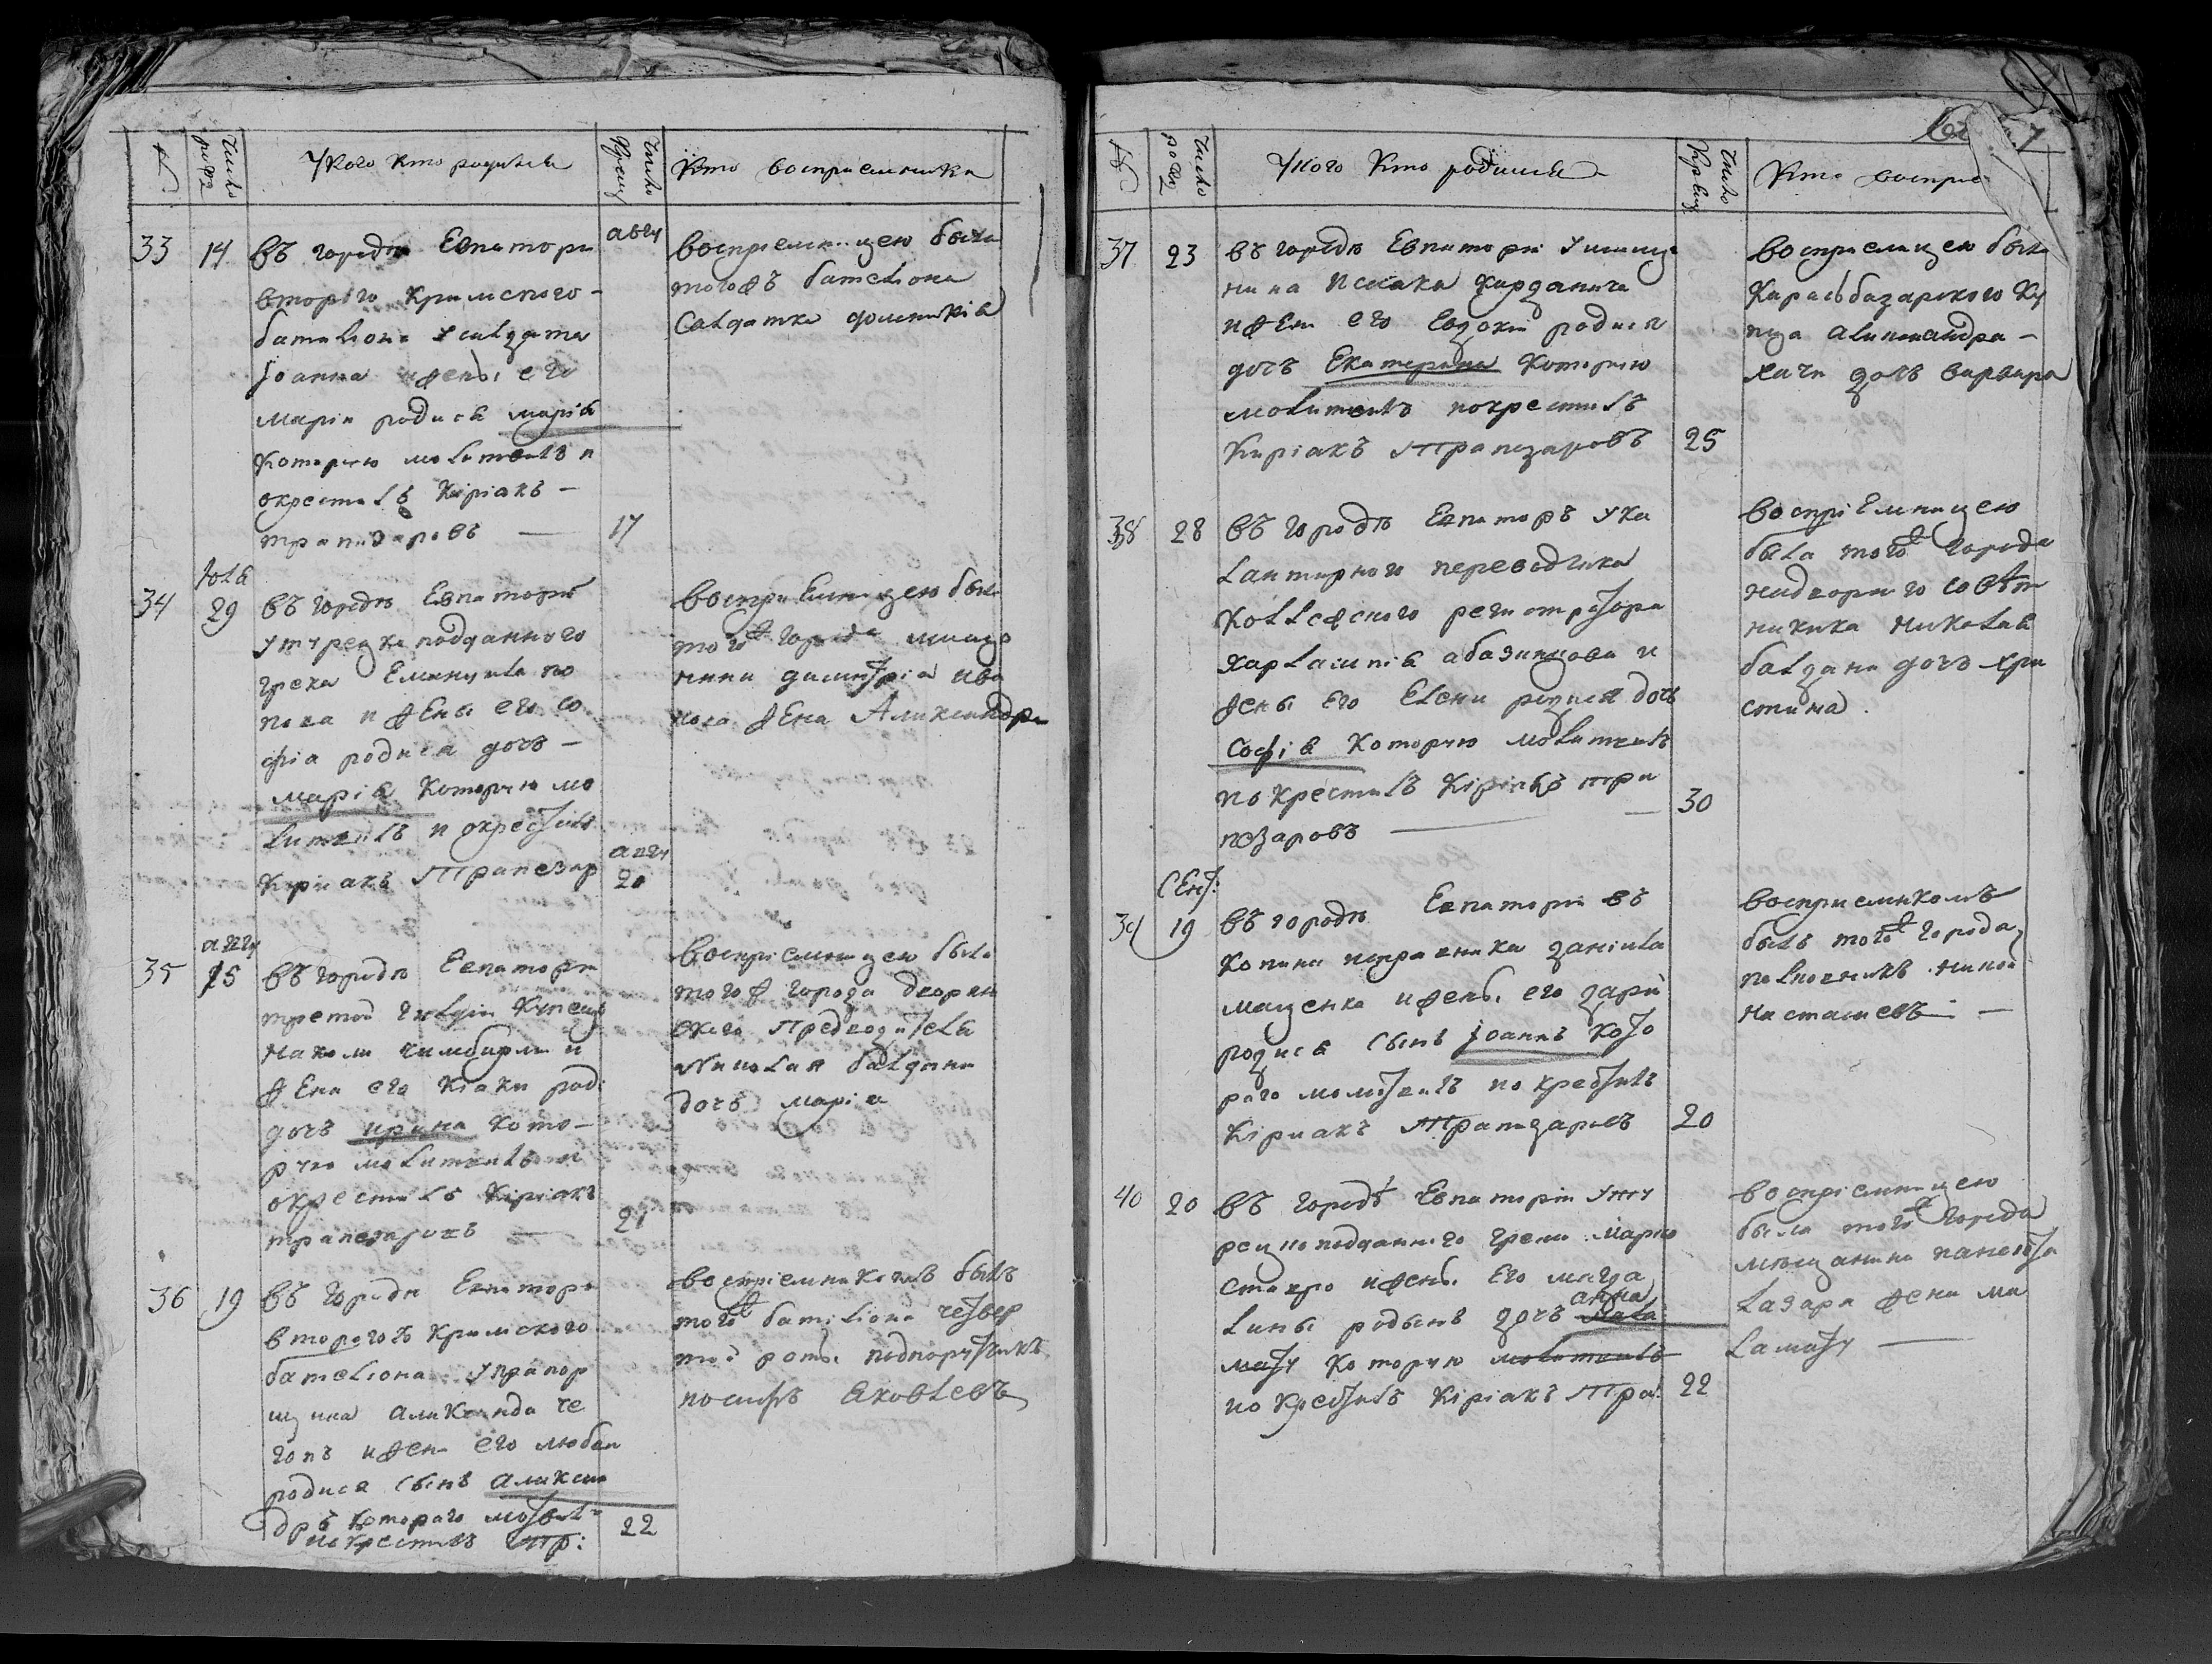 №
Число рожд
У кого кто родился
Число крещ
Кто восприемники
33
14
въ городѣ Евпатори
второго Кримского -
баталиона у салдата
Іоанна и жены его
Марiи родися марія
которую молитвилъ и
окрестилъ Киріакъ -
трапизаровъ —
авгу
17
восприемницею была
тогожъ бателіона
Салдатка
34
29
въ городѣ Евпаторiи
у турецка подданного
грека Емануила по
пова и жены его со
фіа родися дочъ —
марія которую мо
литвилъ и окрестилъ
Киріакъ Трапезар
авгу
20
восприемницею была
тогож города мища
нина димитріа ива
нова жена Александра
35
авгу
15
въ городѣ Евпаторiи
третой гилдiи купеца
и
жена его родi
дочъ ирина кото—
рую молитвилъ и
окрестилъ Киріакъ
трапезаровъ —
21
восприемницею была
тогож города дворян
скаго Предводителя
Николая балдани
дочъ маріа
36
19
въ городѣ Евпатори
второгого Кримского
бателиона у прапор
щика Александа че
гопъ и жены его любви
родися сынъ Алексан
дръ которого молитвил
покрестилъ Тр:
22
восприемникомъ былъ
тогож баталиона четвер
той роты подпоручикъ
иосифъ Яковлевъ
№
Число рожд
У кого кто родился
Число крещ
Кто воспрiе
7
37
23
въ городѣ Евпаторiи у мища
нина
и жены его Евдокiи родися
дочъ Екатерина которую
молитвилъ покрестилъ
Киріакъ Трапизаровъ
25
восприемницею была
Карасьбазарского ку
пца Александра —
дочъ варвара
38
28
въ городѣ Евпаторъ у ка
рантирного переводчика
коллежского регистратора
харлампія абазинцова и
жены его Елени родися дочъ
Софія которую молитвилъ
покрестилъ Киріакъ тра
пезаровъ —
30
воспріемницею
была тогож города
надворнего совѣт
никика николая
балдани дочъ хри
стина.
39
Сент:
19
въ городѣ Евпаторiи въ
заніила
и жены его
родися сынъ Іоаннъ кото
раго молитвилъ покрестилъ
Киріакъ Трапизаровъ
20
восприемникомъ
былъ тогож города
полковникъ
—
40
20
въ городѣ Евпаторiи у ту
рецко подданнего грека марко
ставро и жены его магда
лины родынъ дочъ анна
мала
мату которую молитвилъ
покрестилъ Киріакъ Тра:
22
воспріемницею
была тогож города
мѣщанина панаіота
лазара жена ма
ламату —